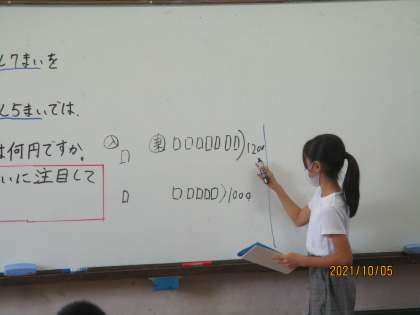 と7まいを
と5まいでは、
は何円ですか。
いに注目して
入
1200
1000
2021/10/05